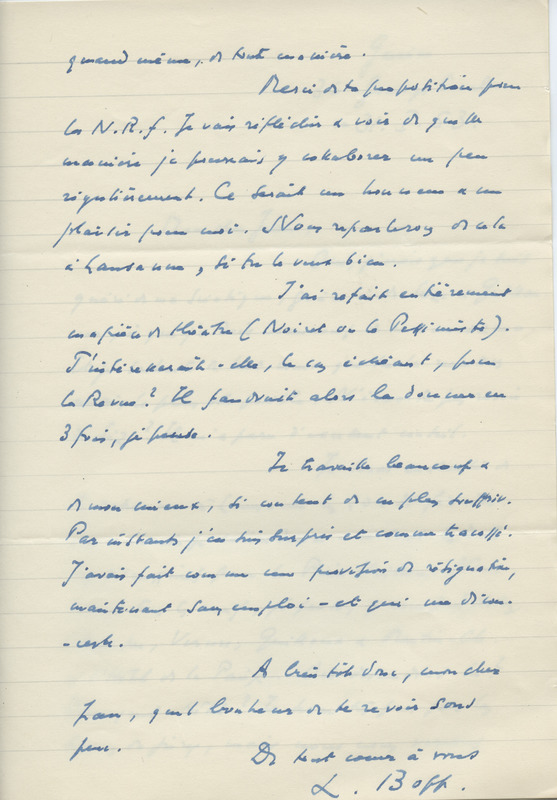 quand même, de toute manière.
Merci de ta proposition pour
la N.R.f. Je vais réfléchir à voir de quelle
manière je pourrais y collaborer un peu
régulièrement. Ce serait un honneur & un
plaisir pour moi. Nous reparlerons de cela
à Lausanne, si tu le veux bien.
J'ai refait entièrement
ma pièce de théâtre (Noiret ou le Pessimiste).
T'intéresserait-elle, le cas échéant, pour
la Revue? Il faudrait alors la donner en
3 fois, je pense.
Je travaille beaucoup &
de mon mieux, si content de ne plus souffrir.
Par instants j'en suis surpris et comme tracassé.
J'avais fait comme une provision de résignation,
maintenant sans emploi - et qui me décon-
-certe.
A bientôt donc, mon cher
Jean, quel bonheur de te revoir sous
peu.
De tout coeur à vous
L. Bopp.